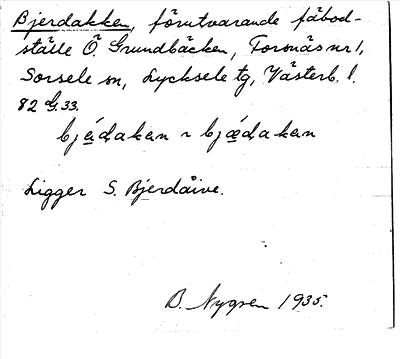 Bjerdakken, förutvarande fäbod-
ställe Ö. Grundbäcken, Forsnäs nr 1,
Sorsele sn, Lycksele tg, Västerb. l.
82 G. 33.
bjä́dakan ~ bjǽdakan
Ligger S. Bjerdåive.
B. Nygren 1935.